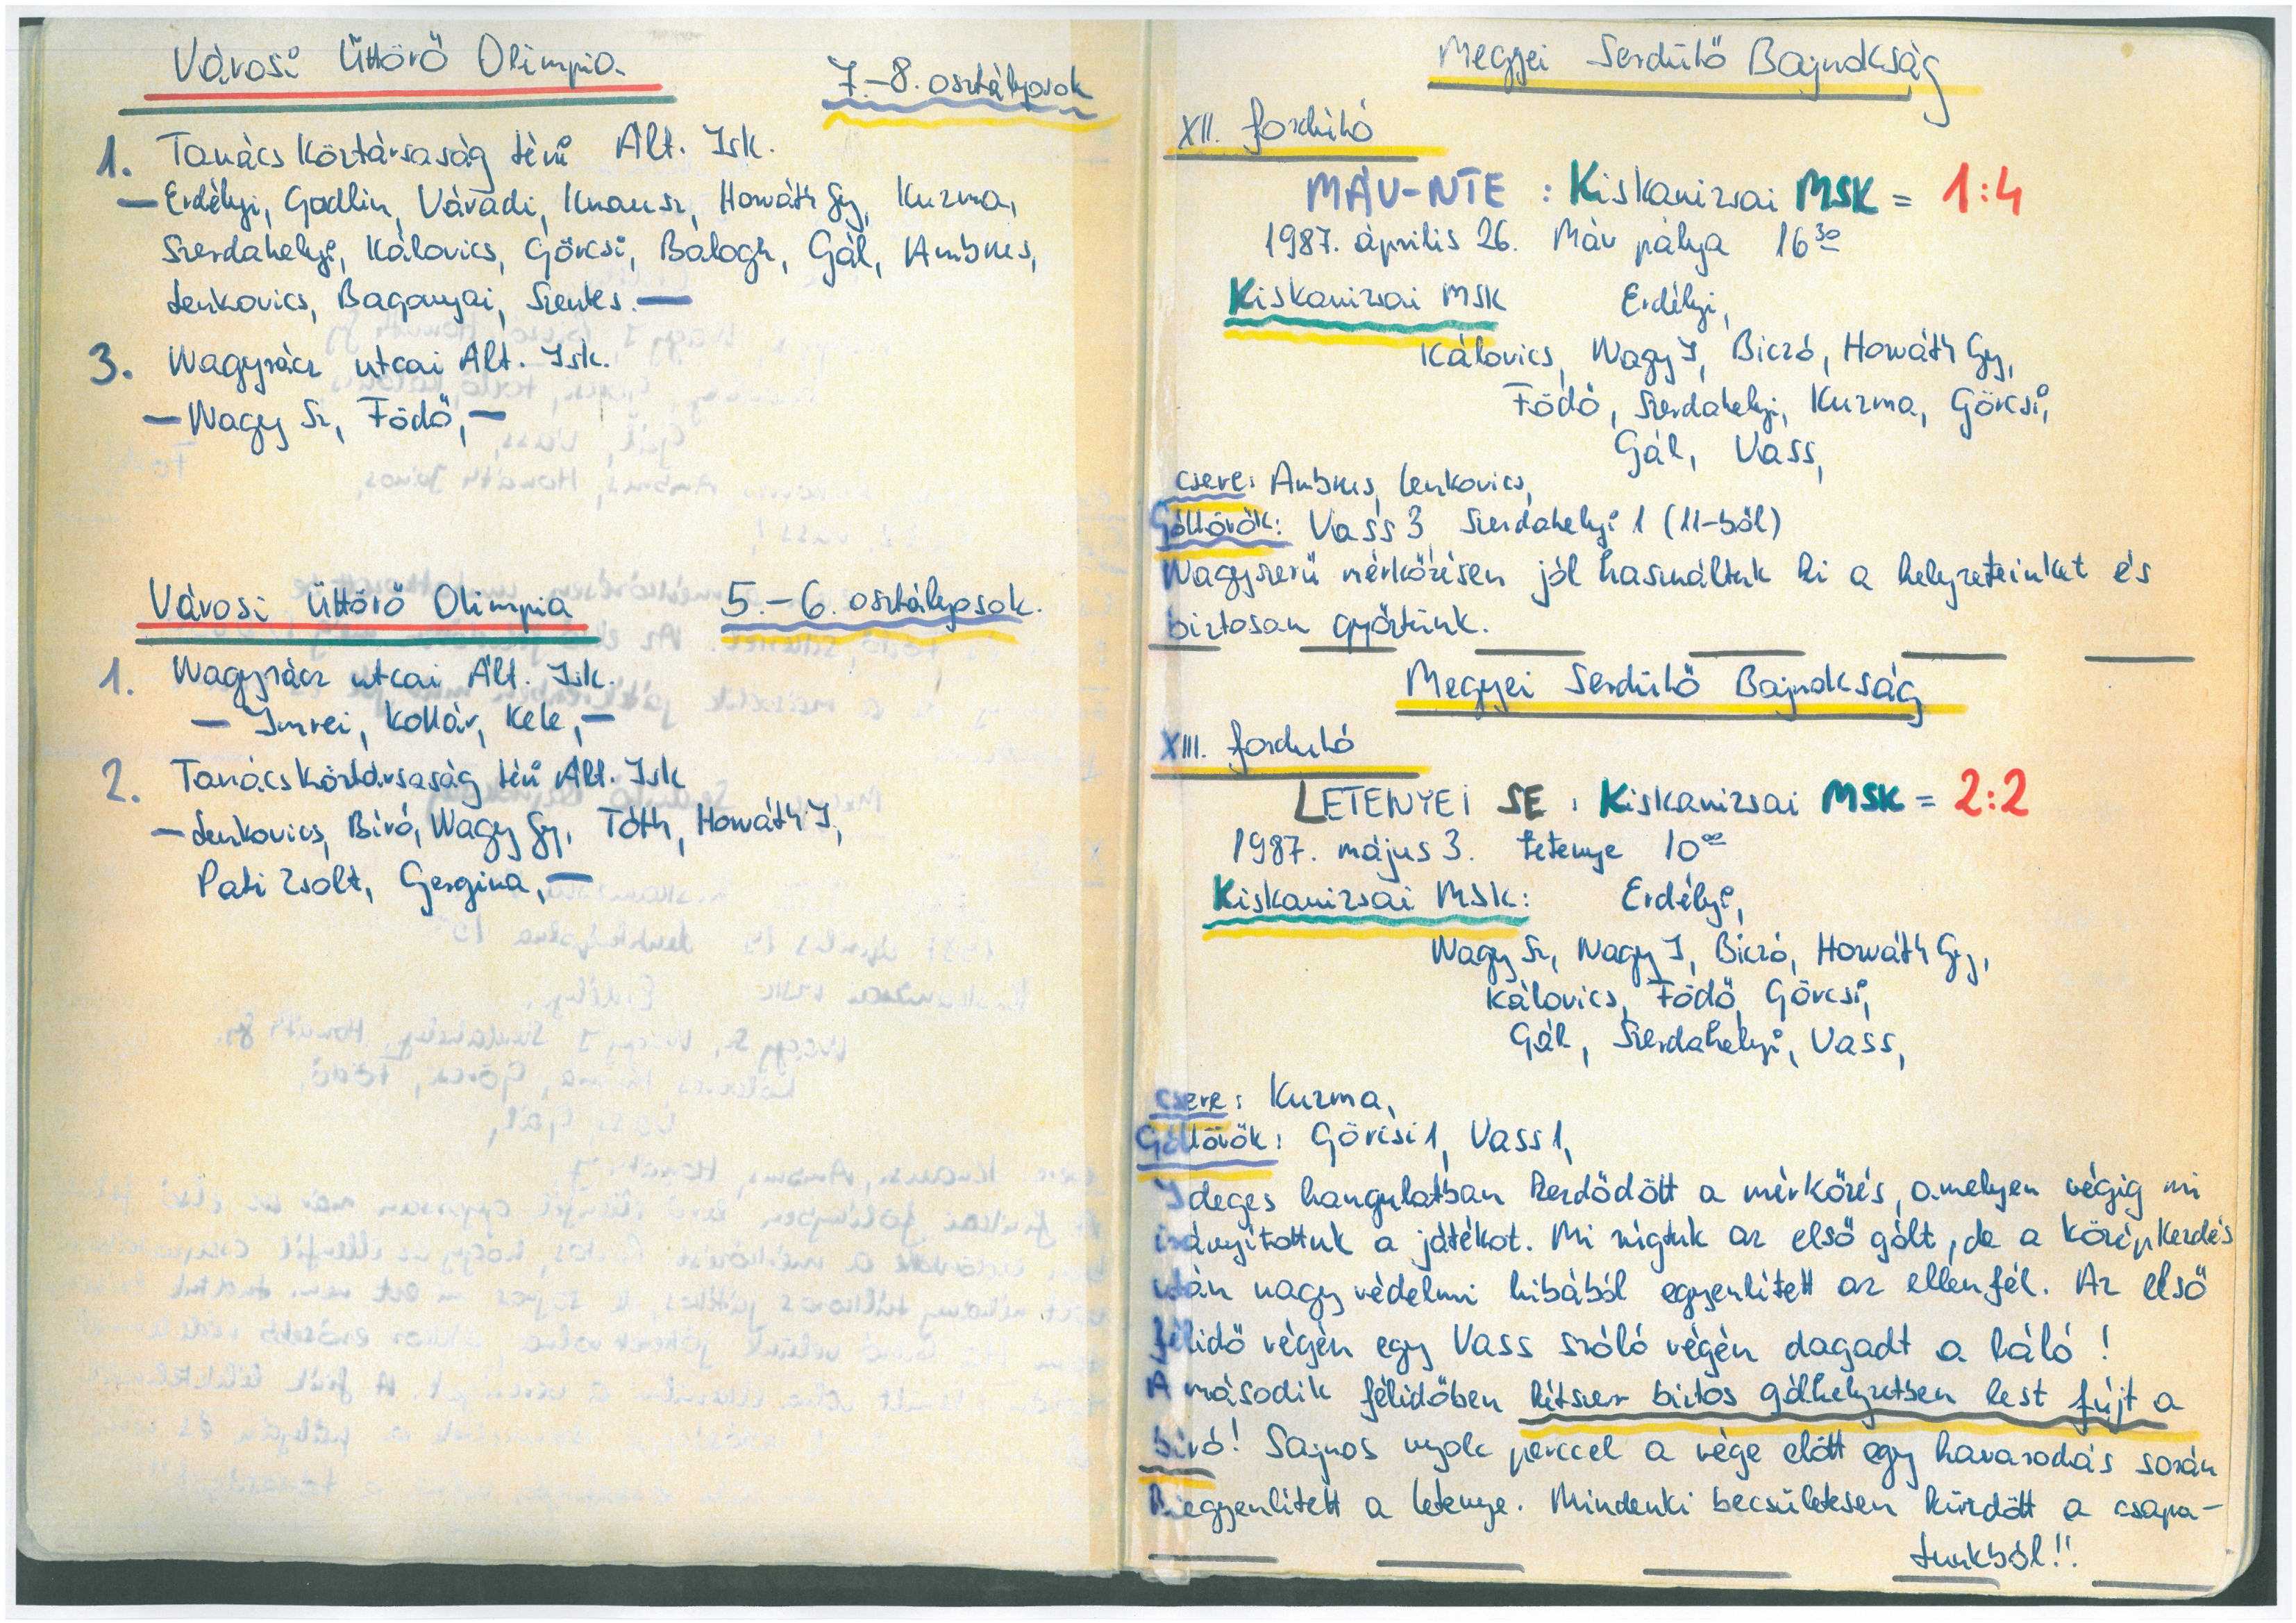 Városi Úttörő Olimpia
7.-8. osztályosok
1. Tanácsköztársaság téri Ált. Isk.
— Erdélyi, Godlin, Váradi, Knausz, Horváth Gy, Kuzma,
Szerdahelyi, Kálovics, Göresi, Balogh, Gál, Ambrus,
Lenkovics, Baganyai, Szentes. —
3. Nagyrácz utcai Ált. Isk.
— Nagy Sz, Födő, —
Városi Úttörő Olimpia
5.-6. osztályosok.
1. Nagyrácz utcai Ált. Isk.
— Imrei, Kollár, Kele, —
2. Tanácsköztársaság téri Ált. Isk
— Lenkovics, Bíró, Nagy Gy, Tóth, Horváth J,
Pati Zsolt, Gergina, —
Megyei Serdülő Bajnokság
XII. forduló
MÁV-NTE : Kiskanizsai MSK = 1:4
1987. április 26. Máv pálya 16 30
Kiskanizsai MSK Erdélyi,
Kálovics, Nagy J, Biczó, Horváth Gy,
Födő, Szerdahelyi, Kuzma, Göresi,
Gál, Vass,
csere: Ambrus, Lenkovics,
Góllövők: Vass 3, Szerdahelyi 1 (11-ből)
Nagyszerű mérkőzésen jól használtuk ki a helyzeteinket és
biztosan győztünk.
Megyei Serdülő Bajnokság
XIII. forduló
LETENYEI SE : Kiskanizsai MSK = 2:2
1987. május 3. Letenye 10 00
Kiskanizsai MSK: Erdélyi,
Nagy Sz, Nagy J, Biczó, Horváth Gy,
Kálovics, Födő, Göresi,
Gál, Szerdahelyi, Vass,
csere: Kuzma,
Góllövők: Göresi 1, Vass 1,
Ideges hangulatban kezdődött a mérkőzés, amelyen végig mi
irányítottuk a játékot. Mi rúgtuk az első gólt, de a középkezdés
után nagy védelmi hibából egyenlített az ellenfél. Az első
félidő végén egy Vass szóló végén dagadt a háló!
A második félidőben kétszer biztos gólhelyzetben lest fújt a
bíró! Sajnos nyolc perccel a vége előtt egy kavarodás során
kiegyenlített a Letenye. Mindenki becsületesen küzdött a csapa-
tunkból!!